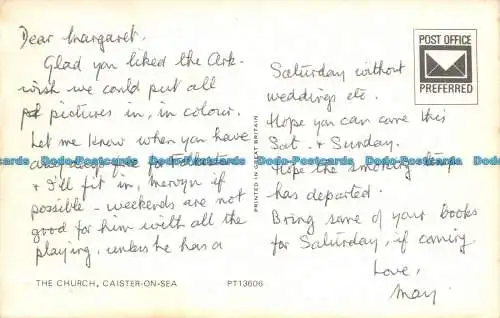 Dear Margaret.
Glad you liked the Ark -
wish we could put all
pictures in, in colour.
Let me know when you have
any day free for
+ I'll fit in, Mervyn if
possible - weekends are not
good for him with all the
playing, unless he has a
Saturday without
weddings etc.
Hope you can come this
Sat. + Sunday.
Hope the smoking
has departed.
Bring some of your books
for Saturday, if coming
Love,
May.
POST OFFICE
PREFERRED
PRINTED IN GREAT BRITAIN
THE CHURCH, CAISTER-ON-SEA PT13606
Dodo-Postcards Dodo-Postcards Dodo-Postcards Dodo-Postcards